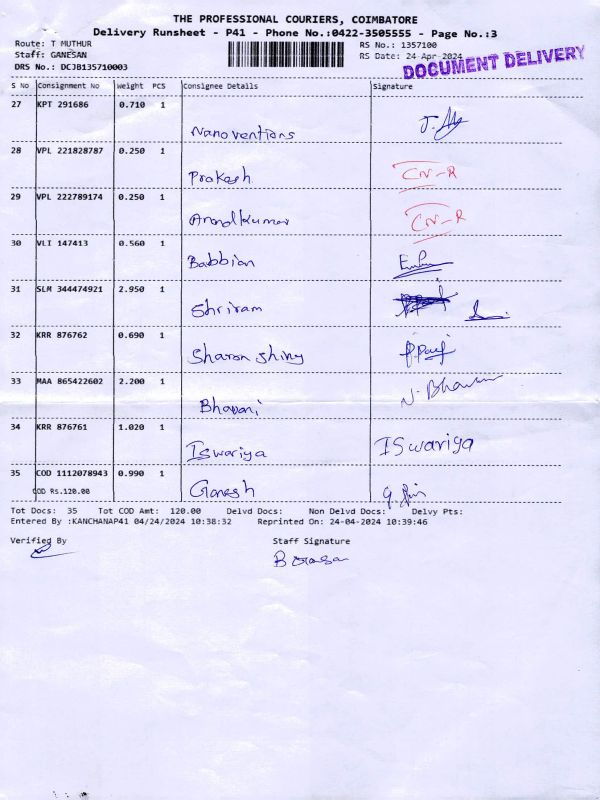 THE PROFESSIONAL COURIERS, COIMBATORE
Delivery Runsheet - P41 - Phone No.:0422-3505555 - Page No.:3
Route: T MUTHUR RS No.: 1357100
Staff: GANESAN RS Date: 24-Apr-2024
DRS No.: DCJB135710003 DOCUMENT DELIVERY
S No Consignment No Weight PCS Consignee Details Signature
27 KPT 291686 0.710 1
Nanoventions
28 VPL 221828787 0.250 1
Prakash CN-R
29 VPL 222789174 0.250 1
CN-R
30 VLI 147413 0.560 1
Babbian
31 SLM 344474921 2.950 1
Shriram
32 KRR 876762 0.690 1
Sharon Shiny
33 MAA 865422602 2.200 1
Bhavani
34 KRR 876761 1.020 1
Iswariya ISwariya
35 COD 1112078943 0.990 1
COD Rs.120.00 Ganesh
Tot Docs: 35 Tot COD Amt: 120.00 Delvd Docs: Non Delvd Docs: Delvy Pts:
Entered By :KANCHANAP41 04/24/2024 10:38:32 Reprinted On: 24-04-2024 10:39:46
Verified By Staff Signature